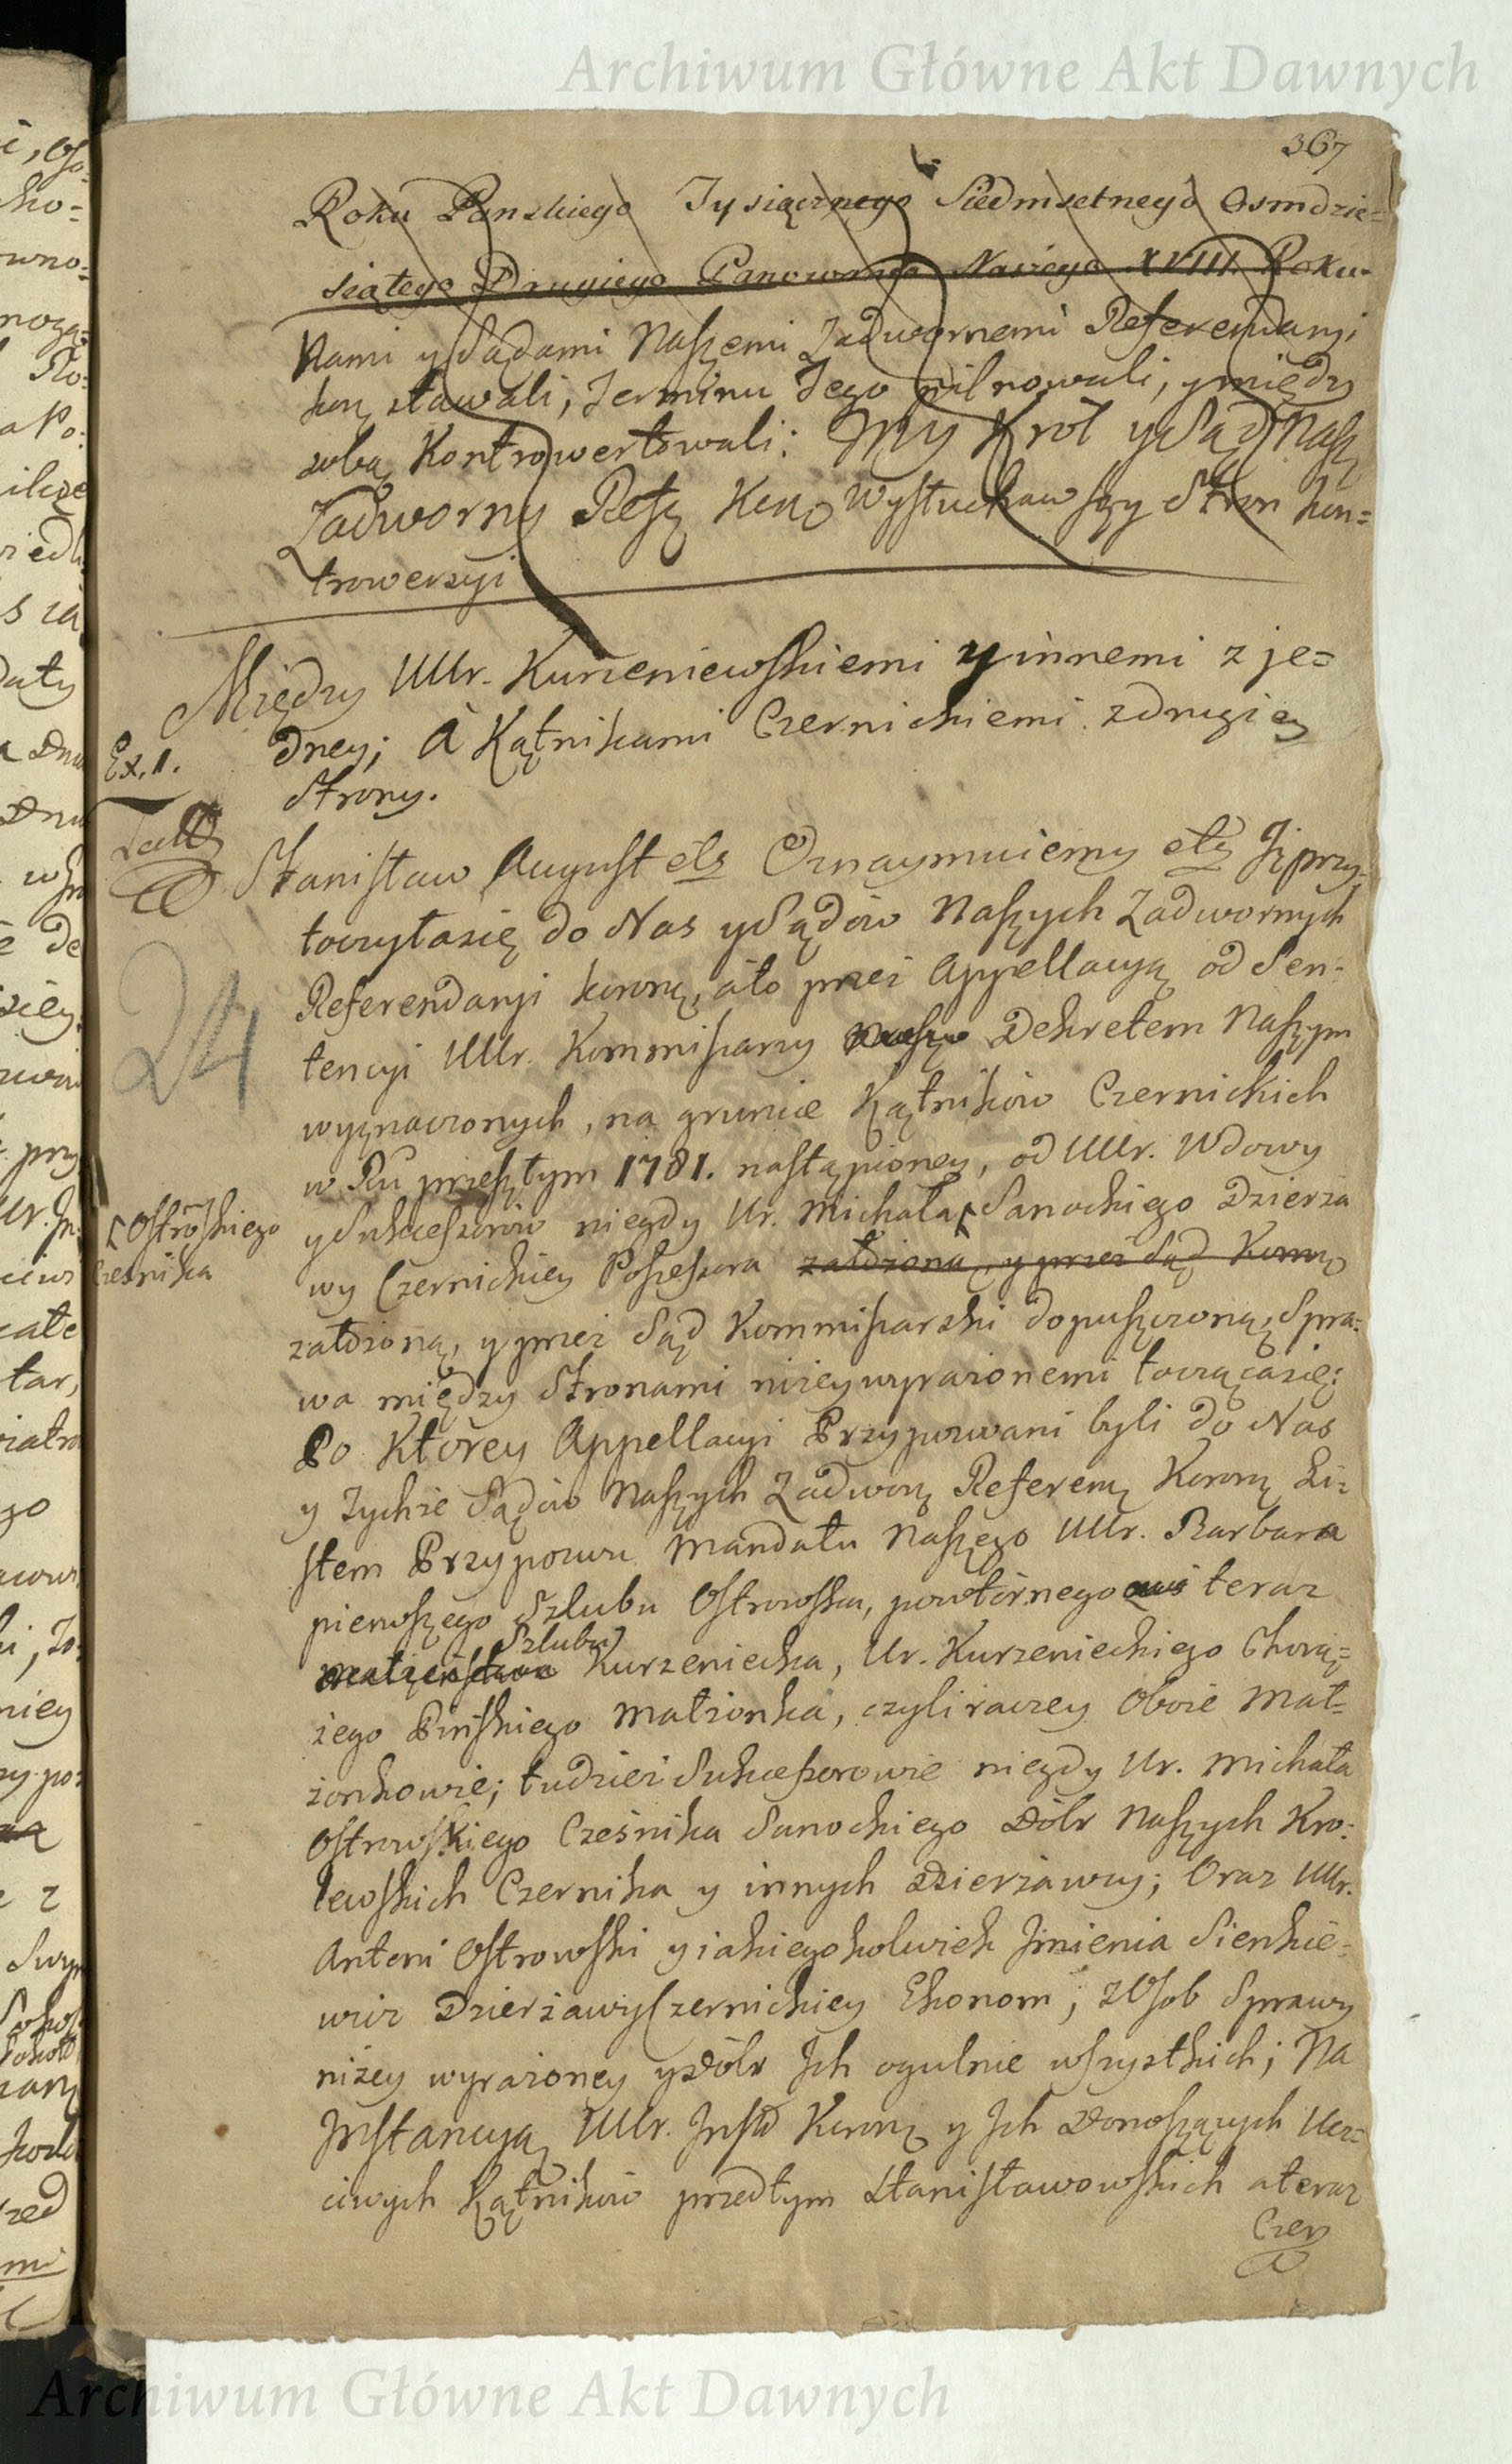 Archiwum Główne Akt Dawnych
367
Roku Panskiego Tysiącznego Siedmsetnego Osmdzie=
siątego Drugiego Panowania Naszego XVIII Roku
Nami y Sądami Naszemi Zadwornemi Referendarzi
kor: stawali, Terminu Tego pilnowali, y między
sobą Kontrowertowali: My Król y Sąd Nasz
Zadworny Refz Koro wysłuchawszy Stron kon=
trowersyi
Między UUr. Kurzeniewskiemi y innemi z je=
dney; à Kątnikami Czernickiemi z drugiey
Strony.
Ex. 1.
24
Stanisław August etc Oznaymuiemy etc Jż przy
toczyłasię do Nas y Sądów Naszych Zadwornych
Referendarzi koronz, áto przez Appellacyą od Sen=
tencyi UUr. Kommissarzy Dekretem Naszym
wyznaczonych, na gruncie Kątników Czernickich
w Ru przeszłym 1781. nastąpioney, od UUr. Wdowy
y Sukcessorów niegdy Ur. Michała Sanockiego Dzierża
Ostrowskiego
Cześnika
wy Czernickiey Possessora założoną, y przez Sąd Kommo
założoną, y przez Sąd Kommissarski dopuszczoną, Spra=
wa między Stronami niżey wyrażonemi toczącasię:
Po Którey Appellacyi Przypozwani byli do Nas
y Tychże Sądów Naszych Zadworz Referenz Koronz Li=
stem Przypozwu Mandatu Naszego UUr. Barbara
pierwszego Szlubu Ostrowska, powtórnego teraz
Szlubu
małżeństwa Kurzeniecka, Ur. Kurzenieckiego Chorą=
żego Pińskiego Małżonka, czyli raczey Oboie Mał=
żonkowie; tudzież Sukcessorowie niegdy Ur. Michała
Ostrowskiego Cześnika Sanockiego Dóbr Naszych Kro=
lewskich Czernika y innych Dzierżawcy; Oraz UUr.
Antoni Ostrowski y iakiegokolwiek Jmienia Sienkie=
wicz Dzierżawy Czernickiey Ekonom; z Osob Sprawy
niżey wyrażoney y Dóbr Jch ogulnie wszystkich; Na
Jnstancyą UUr. Insty Koronz y Jch Donoszących Ucz=
ciwych Kątników przedtym Stanisławowskich a teraz
Czer
Archiwum Główne Akt Dawnych